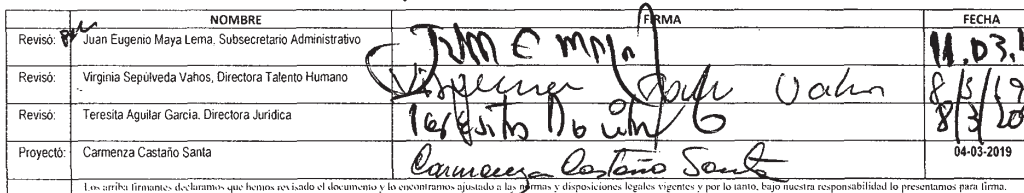 NOMBRE FIRMA FECHA
Revisó: Juan Eugenio Maya Lema. Subsecretario Administrativo 11.03.1
Revisó: Virginia Sepúlveda Vahos, Directora Talento Humano 8/3/19
Revisó: Teresita Aguilar Garcia. Directora Juridica 8/3/20
Proyectó: Carmenza Castaño Santa Carmenza Castaño Santa 04-03-2019
Los arriba firmantes declaramos que hemos revisado el documento y lo encontramos ajustado a las normas y disposiciones legales vigentes y por lo tanto, bajo nuestra responsabilidad lo presentamos para firma.